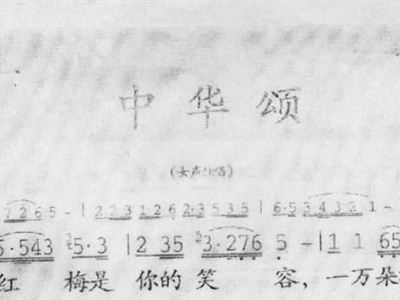 中华颂
(女声独唱)
7265 - | 223 126 2·3535 | 6·5 3432 1 -
5·543 3 5·3 | 2 35 5 3·276 5 - | 1 1 65
红 梅是 你的 笑 容, 一万 朵